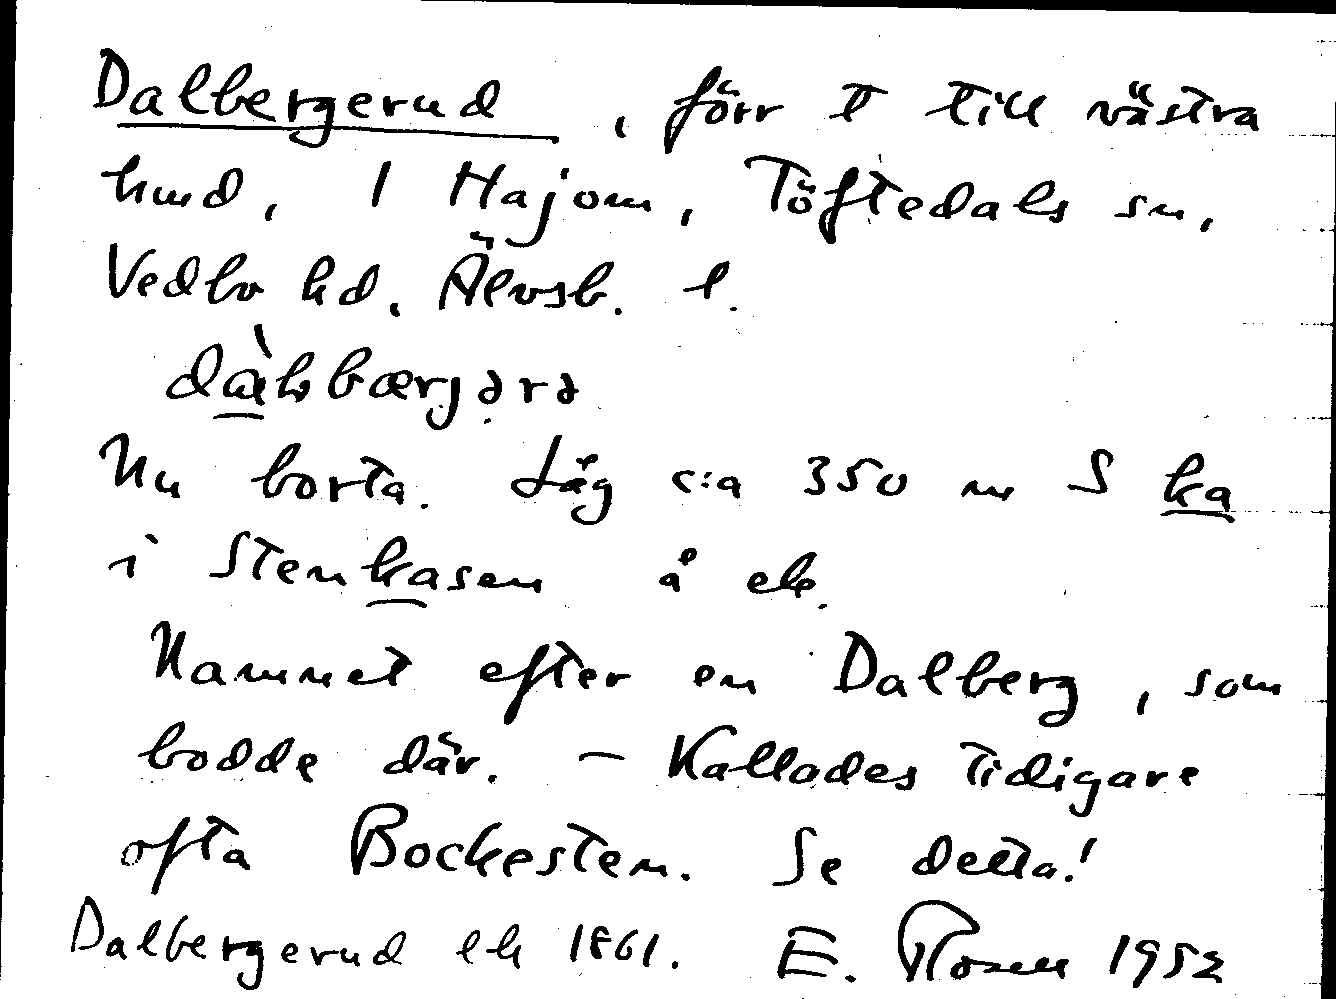 Dalbergerud, förr t till västra
hmd, 1 Hajom, Töftedals sn,
Vedbo hd. Älvsb. l.
Nu borta. Låg c:a 350 m S ka
i Stenkasen å ek.
Namnet efter en Dalberg, som
bodde där. – Kallades tidigare
ofta Bockesten. Se detta!
Dalbergerud ek 1861. E. Rosell 1952